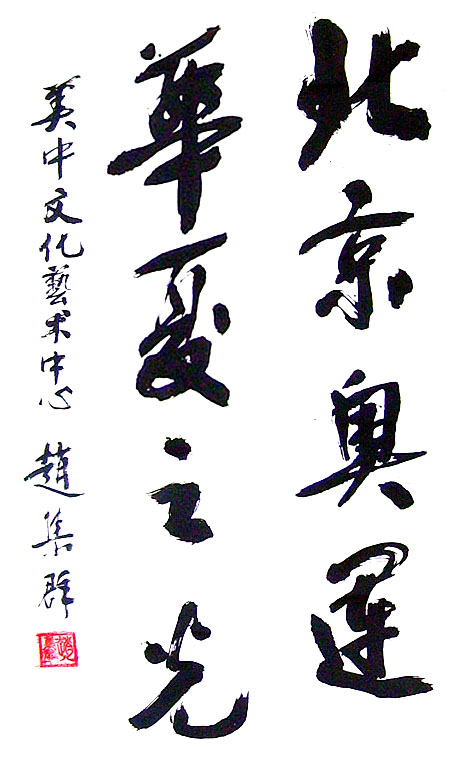 北京奥運
華夏之光
美中文化藝术中心 趙集群